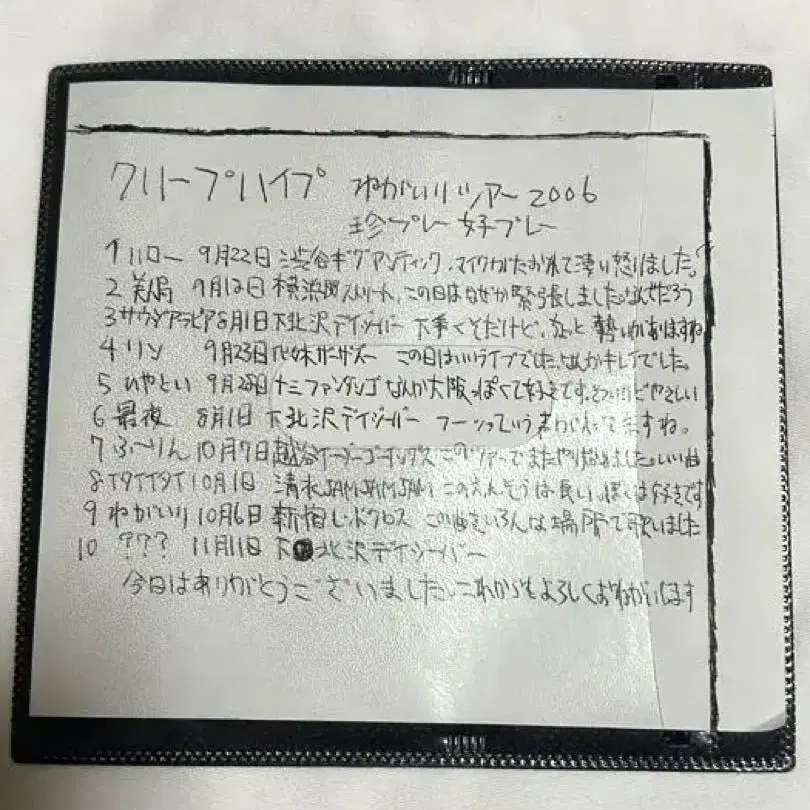 クリープハイプ ねがいりツアー2006
珍プレー好プレー
1 ハロー 9月22日 渋谷ギグアンティック、マイクがたおれて凄い怒りました。
2 美人局 9月12日 横浜 ストリート、この日はなぜか緊張しました。なんでだろう
3 サウジアラビア 8月1日 下北沢デイジーバー 下手くそだけど、勢いがありますね
4 リン 9月23日 代々木ザーザズー この日はいいライブでした。なんかキレイでした。
5 いやとい 9月28日 十三ファンダンゴ なんか大阪っぽくて好きです。
6 最後 8月1日 下北沢デイジーバー フーンっていう声が入ってますね。
7 ふ〜りん 10月7日 越谷イージーゴーイングス このツアーでまたやり始めました。いい曲
8 イタイイタイ 10月1日 清水JAMJAMJAM このえんそうは長い、ぼくは好きです
9 ねがいり 10月6日 新宿レッドクロス この曲をいろんな場所で歌いました
10 ??? 11月11日 下北沢デイジーバー
今日はありがとうございました、これからもよろしくおねがいします